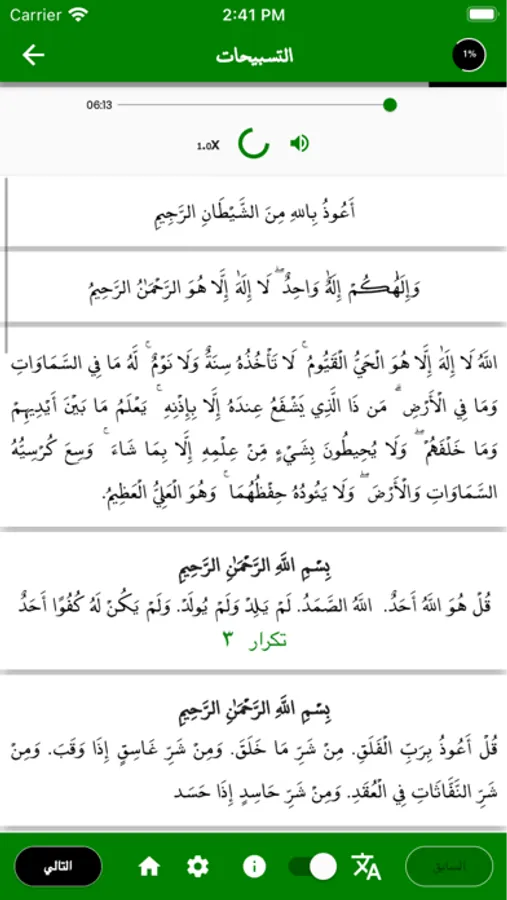 Carrier 2:41 PM
التسبيحات
1%
06:13
1.0X
أَعُوذُ بِاللهِ مِنَ الشَّيْطَانِ الرَّجِيمِ
وَإِلَٰهُكُمْ إِلَٰهٌ وَاحِدٌ ۖ لَا إِلَٰهَ إِلَّا هُوَ الرَّحْمَٰنُ الرَّحِيمُ
اللَّهُ لَا إِلَٰهَ إِلَّا هُوَ الْحَيُّ الْقَيُّومُ ۚ لَا تَأْخُذُهُ سِنَةٌ وَلَا نَوْمٌ ۚ لَّهُ مَا فِي السَّمَاوَاتِ
وَمَا فِي الْأَرْضِ ۗ مَن ذَا الَّذِي يَشْفَعُ عِندَهُ إِلَّا بِإِذْنِهِ ۚ يَعْلَمُ مَا بَيْنَ أَيْدِيهِمْ
وَمَا خَلْفَهُمْ ۖ وَلَا يُحِيطُونَ بِشَيْءٍ مِّنْ عِلْمِهِ إِلَّا بِمَا شَاءَ ۚ وَسِعَ كُرْسِيُّهُ
السَّمَاوَاتِ وَالْأَرْضَ ۖ وَلَا يَئُودُهُ حِفْظُهُمَا ۚ وَهُوَ الْعَلِيُّ الْعَظِيمُ.
بِسْمِ اللَّهِ الرَّحْمَٰنِ الرَّحِيمِ
قُلْ هُوَ اللَّهُ أَحَدٌ. اللَّهُ الصَّمَدُ. لَمْ يَلِدْ وَلَمْ يُولَدْ. وَلَمْ يَكُنْ لَهُ كُفُوًا أَحَدٌ
تكرار ٣
بِسْمِ اللَّهِ الرَّحْمَٰنِ الرَّحِيمِ
قُلْ أَعُوذُ بِرَبِّ الْفَلَقِ. مِنْ شَرِّ مَا خَلَقَ. وَمِنْ شَرِّ غَاسِقٍ إِذَا وَقَبَ. وَمِنْ
شَرِّ النَّفَّاثَاتِ فِي الْعُقَدِ. وَمِنْ شَرِّ حَاسِدٍ إِذَا حَسَد
السابق
التالي